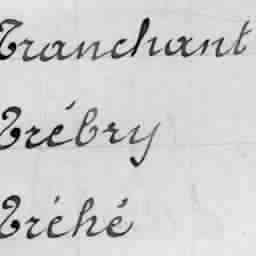 Tranchant
Trébry
Tréhé